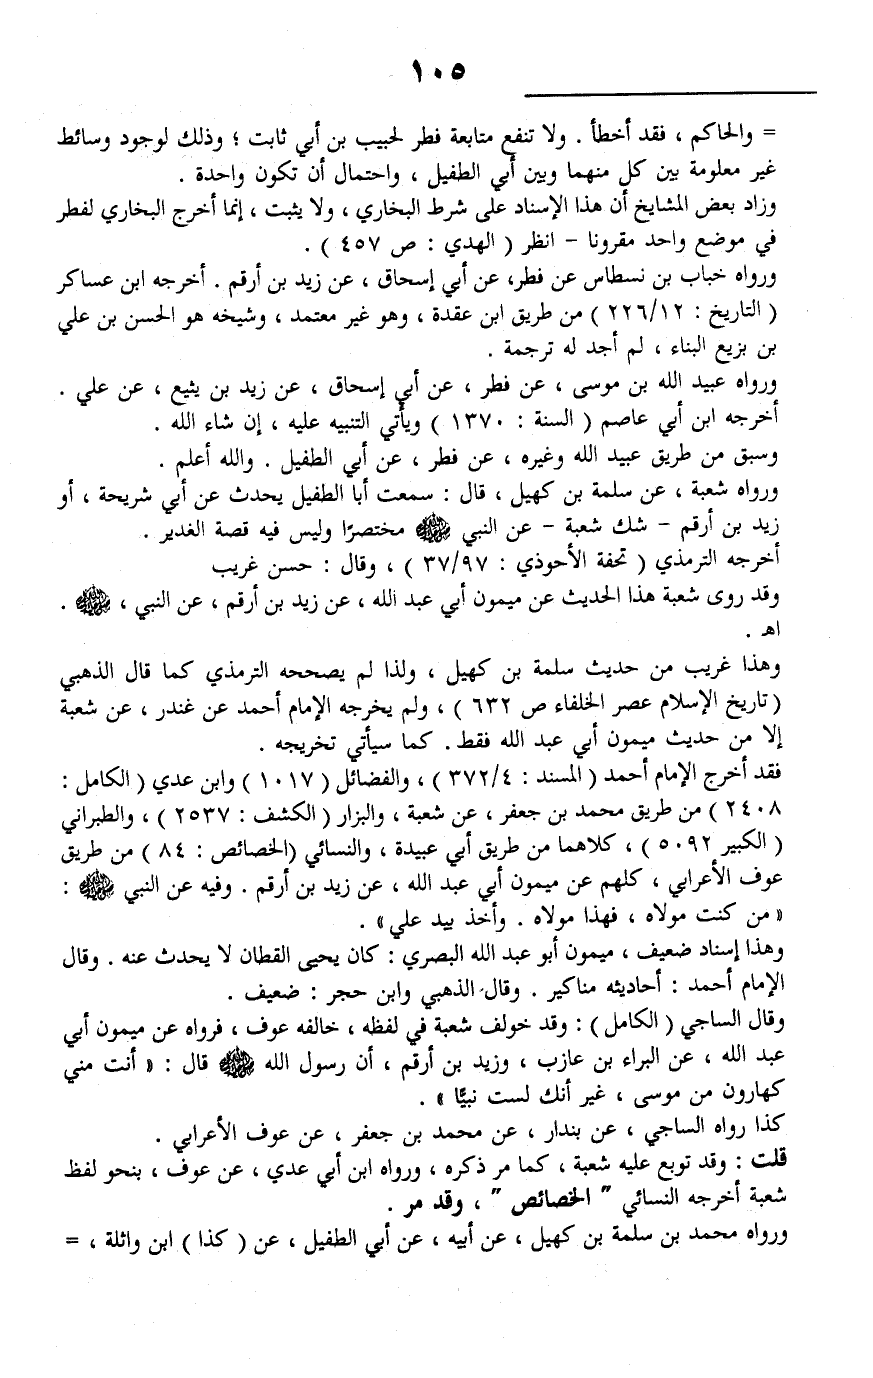 ١٠٥
= والحاكم ، فقد أخطأ . ولا تنفع متابعة فطر لحبيب بن أبي ثابت ؛ وذلك لوجود وسائط
غير معلومة بين كل منهما وبين أبي الطفيل ، واحتمال أن تكون واحدة .
وزاد بعض المشايخ أن هذا الإسناد على شرط البخاري ، ولا يثبت ، إنما أخرج البخاري لفطر
في موضع واحد مقرونا – انظر ( الهدي : ص ٤٥٧ ) .
ورواه خباب بن نسطاس عن فطر، عن أبي إسحاق ، عن زيد بن أرقم . أخرجه ابن عساكر
( التاريخ : ٢٢٦/١٢ ) من طريق ابن عقدة ، وهو غير معتمد ، وشيخه هو الحسن بن علي
بن بزيع البناء ، لم أجد له ترجمة .
ورواه عبيد الله بن موسى ، عن فطر ، عن أبي إسحاق ، عن زيد بن يثيع ، عن علي .
أخرجه ابن أبي عاصم ( السنة : ١٣٧٠ ) ويأتي التنبيه عليه ، إن شاء الله .
وسبق من طريق عبيد الله وغيره ، عن فطر ، عن أبي الطفيل . والله أعلم .
ورواه شعبة ، عن سلمة بن كهيل ، قال : سمعت أبا الطفيل يحدث عن أبي شريحة ، أو
زيد بن أرقم – شك شعبة – عن النبي ﷺ مختصرًا وليس فيه قصة الغدير .
أخرجه الترمذي ( تحفة الأحوذي : ٣٧/٩٧ ) ، وقال : حسن غريب
وقد روى شعبة هذا الحديث عن ميمون أبي عبد الله ، عن زيد بن أرقم ، عن النبي ، ﷺ .
اهـ .
وهذا غريب من حديث سلمة بن كهيل ، ولذا لم يصححه الترمذي كما قال الذهبي
(تاريخ الإسلام عصر الخلفاء ص ٦٣٢ ) ، ولم يخرجه الإمام أحمد عن غندر ، عن شعبة
إلا من حديث ميمون أبي عبد الله فقط . كما سيأتي تخريجه .
فقد أخرج الإمام أحمد ( المسند : ٣٧٢/٤ ) ، والفضائل ( ١٠١٧ ) وابن عدي ( الكامل :
٢٤٠٨ ) من طريق محمد بن جعفر ، عن شعبة ، والبزار ( الكشف : ٢٥٣٧ ) ، والطبراني
( الكبير ٥٠٩٢ ) ، كلاهما من طريق أبي عبيدة ، والنسائي (الخصائص : ٨٤ ) من طريق
عوف الأعرابي ، كلهم عن ميمون أبي عبد الله ، عن زيد بن أرقم . وفيه عن النبي ﷺ :
« من كنت مولاه ، فهذا مولاه . وأخذ بيد علي» .
وهذا إسناد ضعيف ، ميمون أبو عبد الله البصري : كان يحيى القطان لا يحدث عنه . وقال
الإمام أحمد : أحاديثه مناكير . وقال الذهبي وابن حجر : ضعيف .
وقال الساجي ( الكامل ) : وقد خولف شعبة في لفظه ، خالفه عوف ، فرواه عن ميمون أبي
عبد الله ، عن البراء بن عازب ، وزيد بن أرقم ، أن رسول الله ﷺ قال : « أنت مني
كهارون من موسى ، غير أنك لست نبيًّا » .
كذا رواه الساجي ، عن بندار ، عن محمد بن جعفر ، عن عوف الأعرابي .
قلت : وقد توبع عليه شعبة ، كما مر ذكره ، ورواه ابن أبي عدي ، عن عوف ، بنحو لفظ
شعبة أخرجه النسائي " الخصائص " ، وقد مر .
ورواه محمد بن سلمة بن كهيل ، عن أبيه ، عن أبي الطفيل ، عن ( كذا ) ابن واثلة ، =